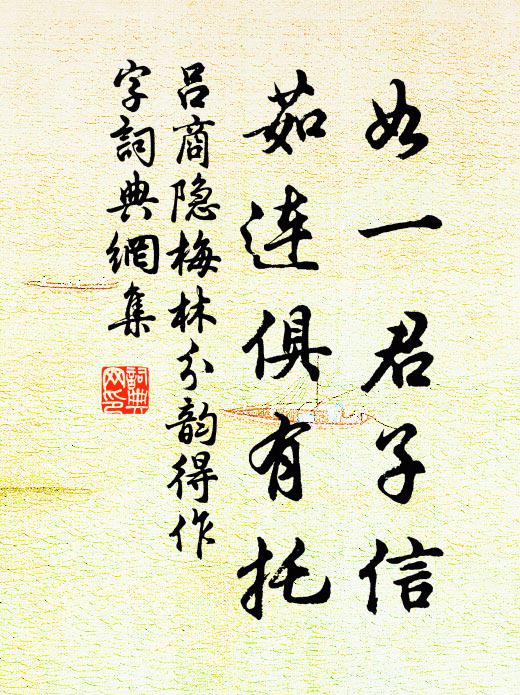 如一君子信
茹连俱有托
吕商隐梅林分韵得作
字詞典網集
詞典
网印